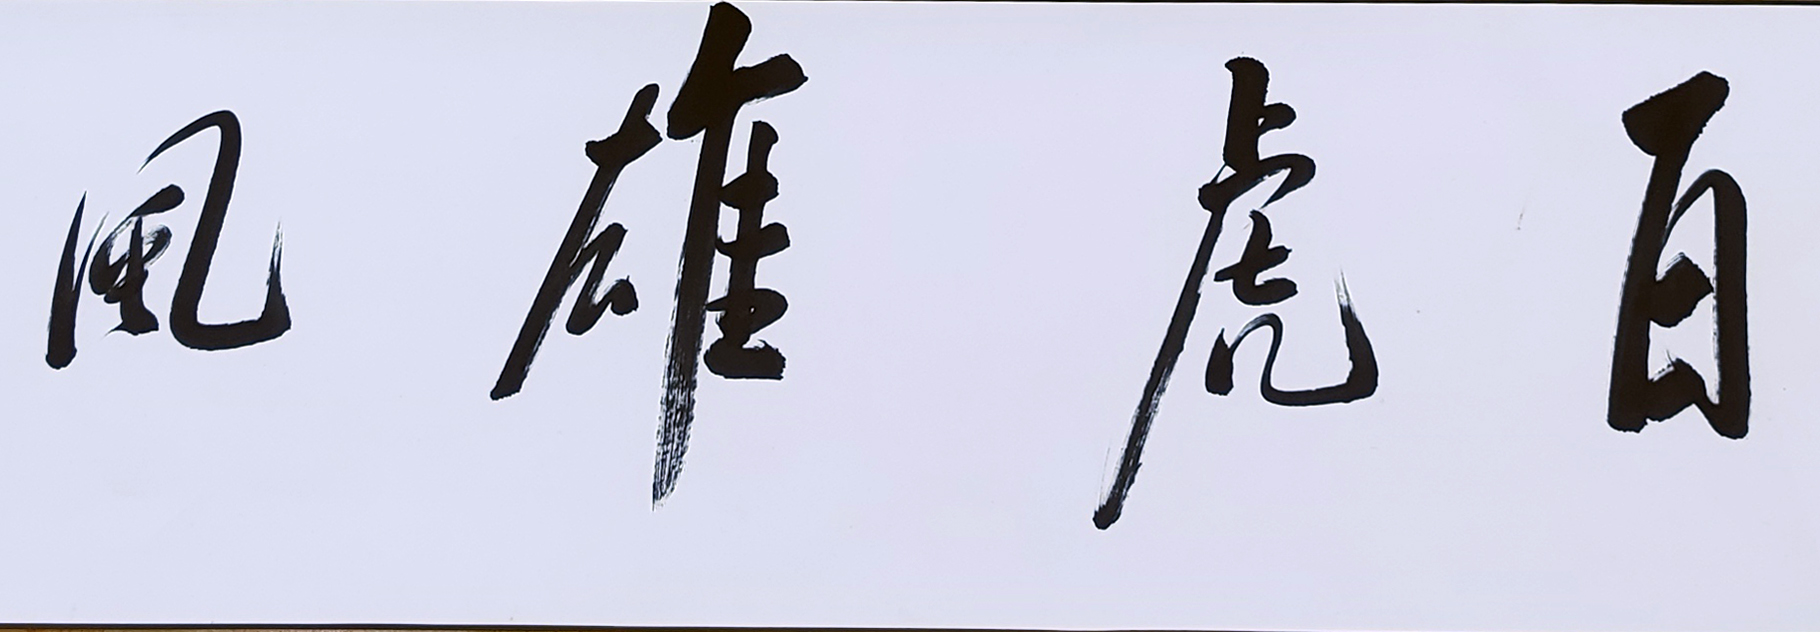 百虎雄風